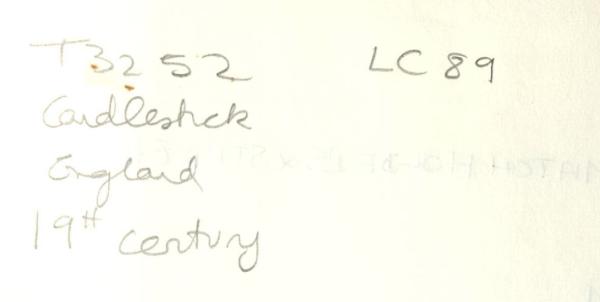 T3252 LC 89
Candlestick
England
19th century